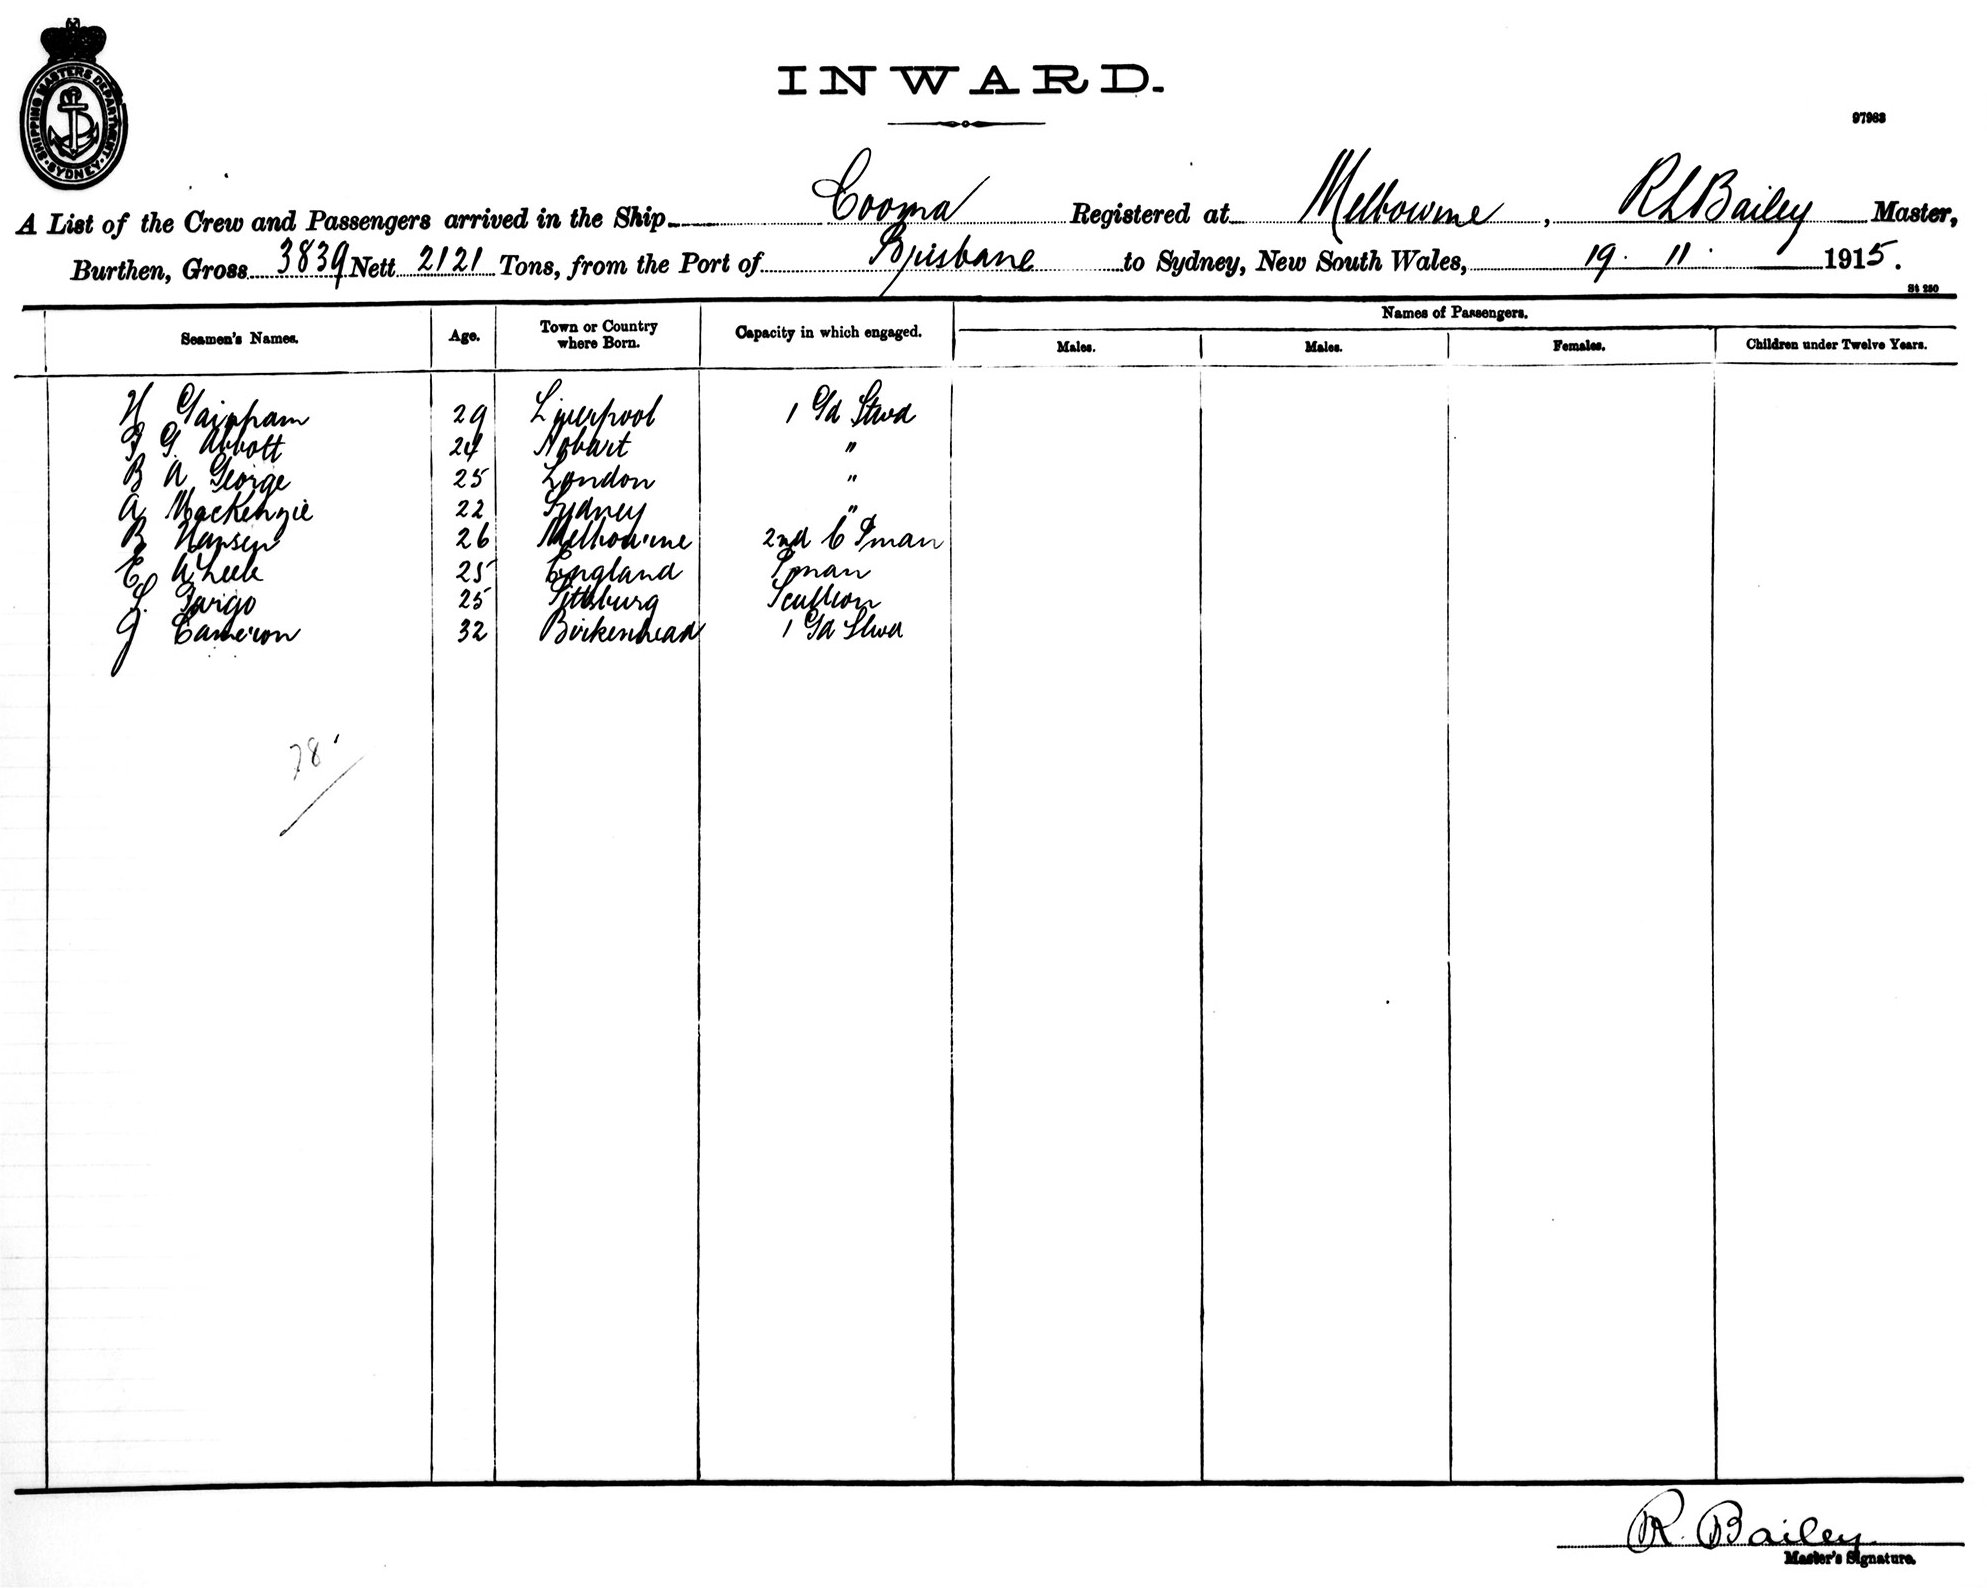 SHIPPING MASTERS DEPARTMENT · SYDNEY ·
INWARD.
97983
A List of the Crew and Passengers arrived in the Ship Cooma Registered at Melbourne, R L Bailey Master,
Burthen, Gross 3839 Nett 2121 Tons, from the Port of Brisbane to Sydney, New South Wales, 19 . 11 . 1915.
St 280
Seamen's Names. Age. Town or Country where Born. Capacity in which engaged. Names of Passengers.
Males. Males. Females. Children under Twelve Years.
H Gainham 29 Liverpool 1 Gd Stwd
G Abbott 24 Hobart "
B A George 25 London "
A MacKenzie 22 Sydney "
B Hansen 26 Melbourne 2nd C Pman
E 25 England Pman
S. Fargo 25 Pittsburg Scullion
J Cameron 32 Birkenhead 1 Gd Stwd
78
R. Bailey
Master's Signature.